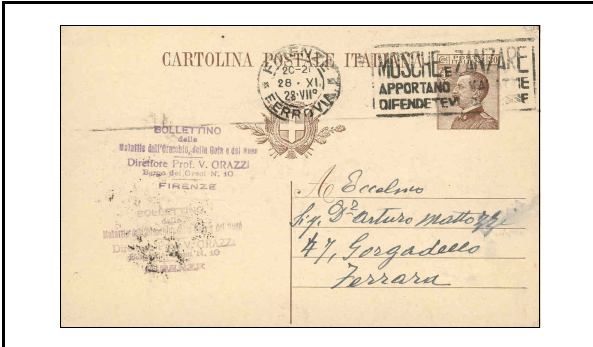 CARTOLINA POSTALE ITALIANA
FIRENZE
20-21
28·XI
28·VII°
FERROVIA
MOSCHE E ZANZARE
APPORTANO MALATTIE
DIFENDETEVI
BOLLETTINO
delle
Malattie dell'Orecchio, della Gola e del Naso
Direttore Prof. V. GRAZZI
Borgo dei Greci N. 10
FIRENZE
BOLLETTINO
Malattie dell'Orecchio, della Gola e del Naso
Direttore Prof. V. GRAZZI
N. 10
FIRENZE
A Eccelmo
Sig. Dr Arturo Mattozzi
47, Gorgadello
Ferrara